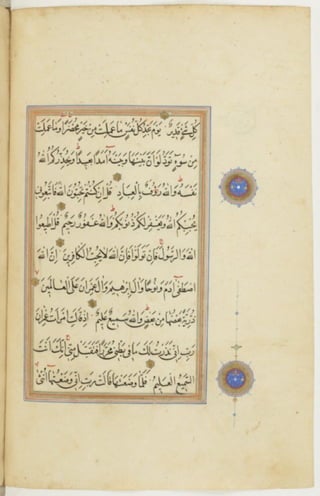 كُلِّ شَيْءٍ قَدِيرٌ يَوْمَ تَجِدُ كُلُّ نَفْسٍ مَا عَمِلَتْ مِنْ خَيْرٍ مُحْضَرًا وَمَا عَمِلَتْ
مِنْ سُوءٍ تَوَدُّ لَوْ أَنَّ بَيْنَهَا وَبَيْنَهُ أَمَدًا بَعِيدًا وَيُحَذِّرُكُمُ اللَّهُ
نَفْسَهُ وَاللَّهُ رَؤُفٌ بِالْعِبَادِ قُلْ إِنْ كُنْتُمْ تُحِبُّونَ اللَّهَ فَاتَّبِعُونِي
يُحْبِبْكُمُ اللَّهُ وَيَغْفِرْ لَكُمْ ذُنُوبَكُمْ وَاللَّهُ غَفُورٌ رَحِيمٌ قُلْ أَطِيعُوا
اللَّهَ وَالرَّسُولَ فَإِنْ تَوَلَّوْا فَإِنَّ اللَّهَ لَا يُحِبُّ الْكَافِرِينَ إِنَّ اللَّهَ
اصْطَفَى آدَمَ وَنُوحًا وَآلَ إِبْرَهِيمَ وَآلَ عِمْرَانَ عَلَى الْعَالَمِينَ
ذُرِّيَّةً بَعْضُهَا مِنْ بَعْضٍ وَاللَّهُ سَمِيعٌ عَلِيمٌ إِذْ قَالَتِ امْرَأَتُ عِمْرَانَ
رَبِّ إِنِّي نَذَرْتُ لَكَ مَا فِي بَطْنِي مُحَرَّرًا فَتَقَبَّلْ مِنِّي إِنَّكَ أَنْتَ
السَّمِيعُ الْعَلِيمُ فَلَمَّا وَضَعَتْهَا قَالَتْ رَبِّ إِنِّي وَضَعْتُهَا أُنْثَى